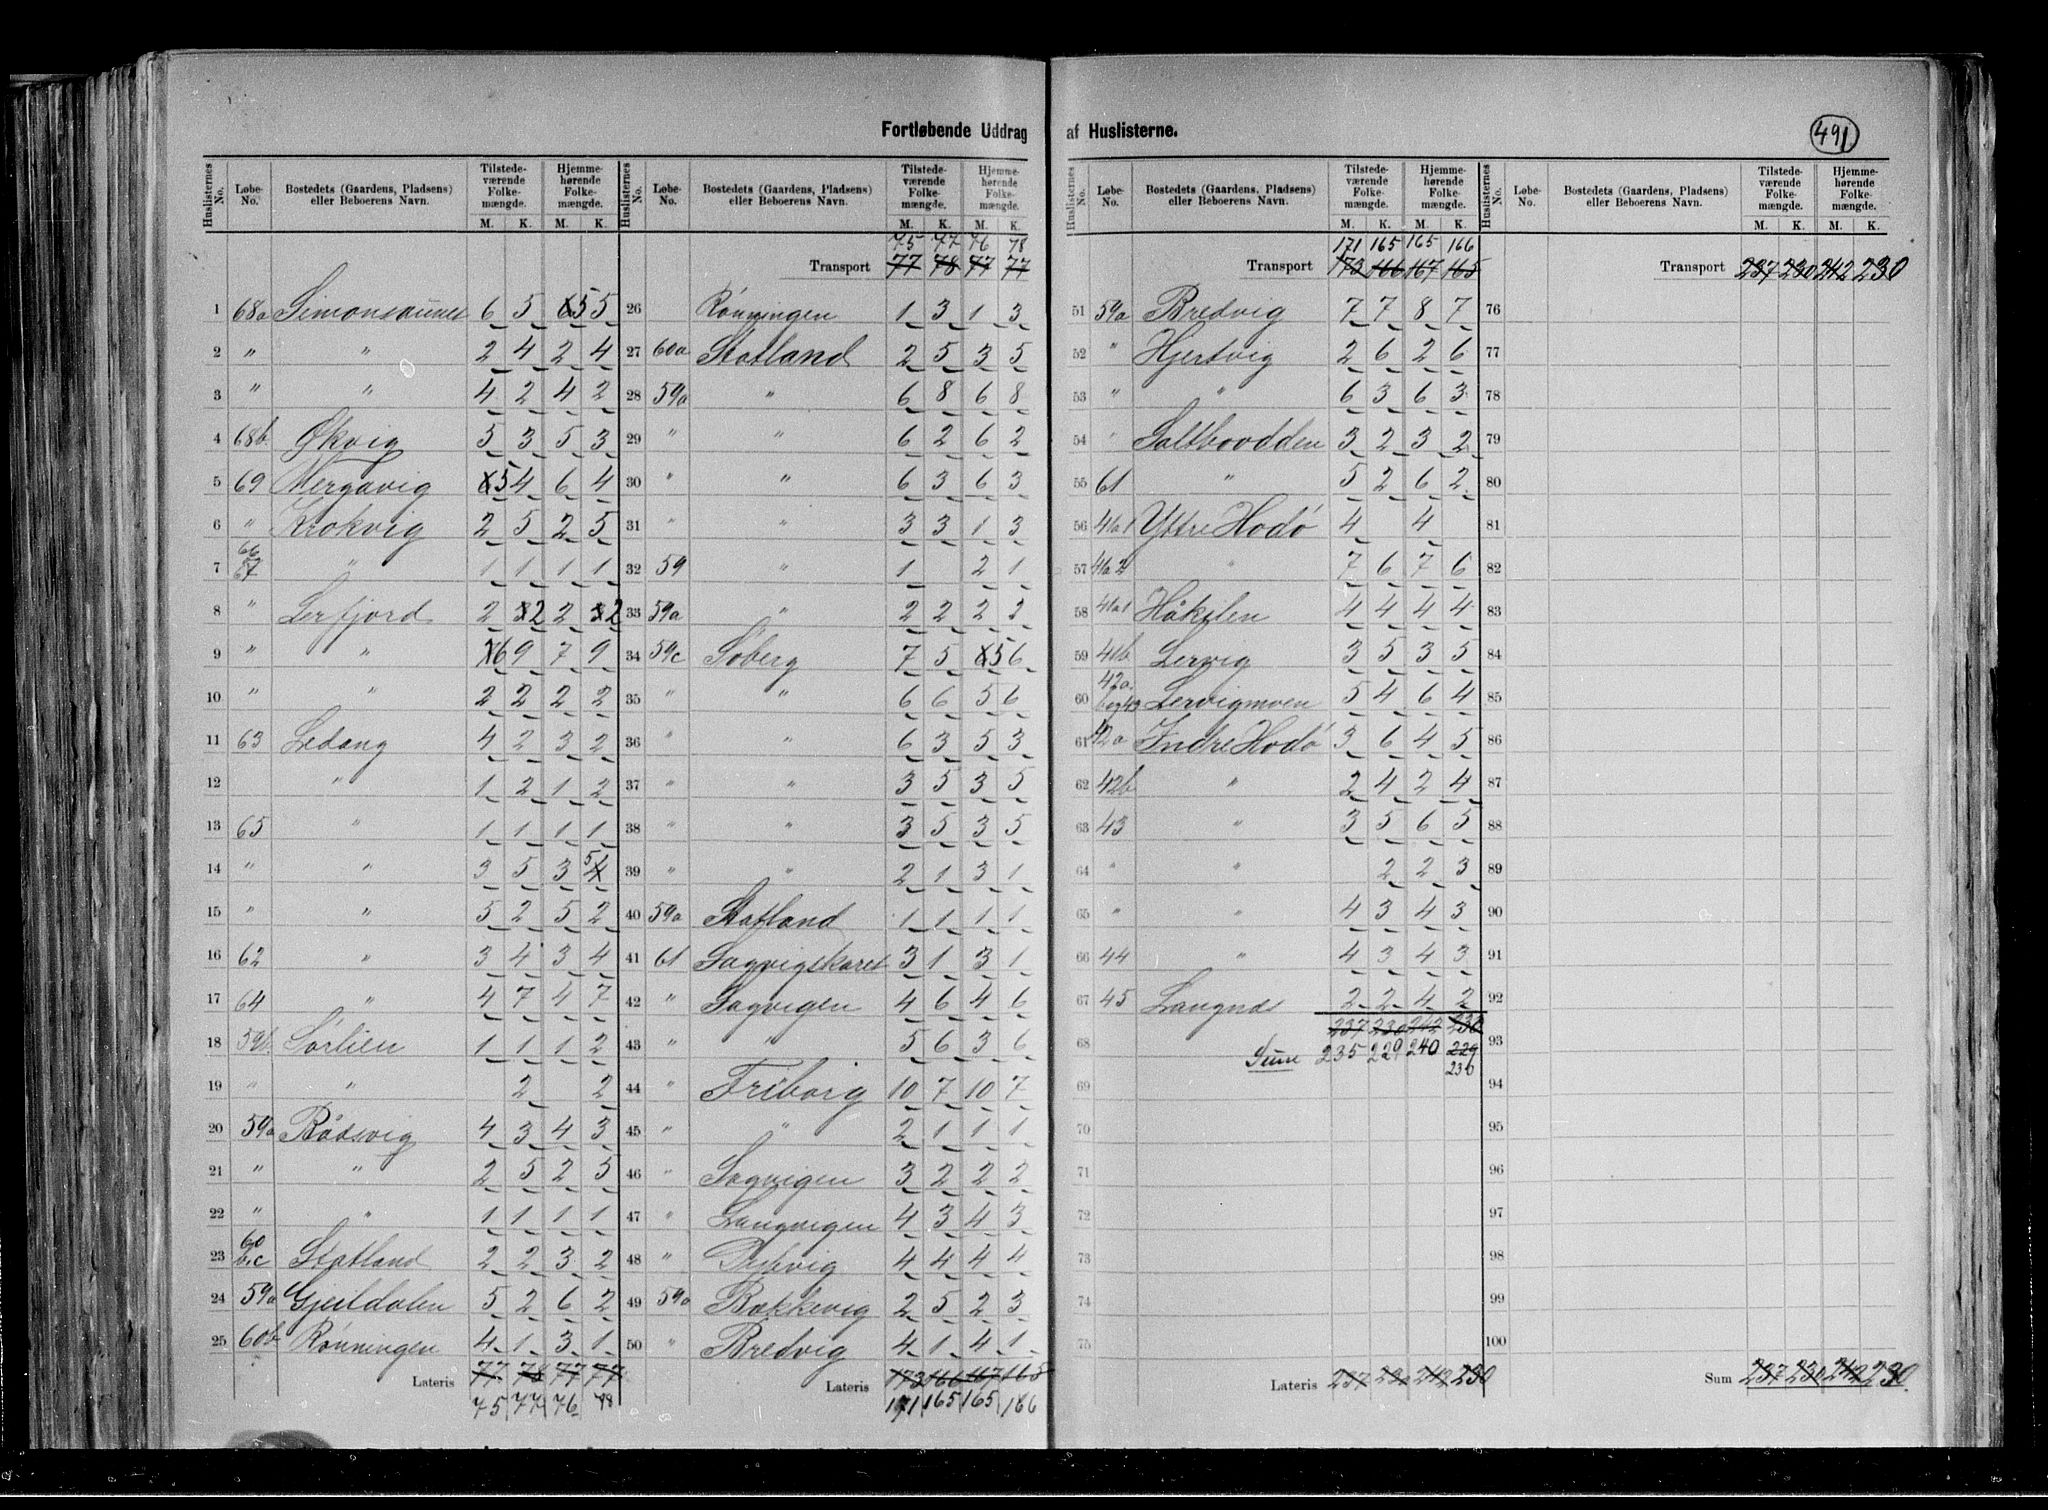 Fortløbende Uddrag af Huslisterne.
491
Huslisternes No. | Løbe-No. | Bostedets (Gaardens, Pladsens) eller Beboerens Navn. | Tilstedeværende Folkemængde. M. K. | Hjemmehørende Folkemængde. M. K.
1 68a Simonsaunet 6 5 5 5
2 " " 2 4 2 4
3 " " 4 2 4 2
4 68b Økvig 5 3 5 3
5 69 Mergavig 5 4 6 4
6 " Krokvig 2 5 2 5
7 66 67 " 1 1 1 1
8 " Lerfjord 2 2 2 2
9 " " 6 9 7 9
10 " " 2 2 2 2
11 63 Ledang 4 2 3 2
12 " 1 2 1 2
13 65 " 1 1 1 1
14 " " 3 5 3 5
15 " " 5 2 5 2
16 62 " 3 4 3 4
17 64 " 4 7 4 7
18 59b Sørlien 1 1 1 2
19 " " 2 2
20 59a Rødsvig 4 3 4 3
21 " " 2 5 2 5
22 " " 1 1 1 1
23 60 b,c Statland 2 2 3 2
24 59a Gjeildalen 5 2 6 2
25 60b Rønningen 4 1 3 1
Lateris 77 78 77 77
75 77 76 78
Huslisternes No. | Løbe-No. | Bostedets (Gaardens, Pladsens) eller Beboerens Navn. | Tilstedeværende Folkemængde. M. K. | Hjemmehørende Folkemængde. M. K.
75 77 76 78
Transport 77 78 77 77
26 Rønningen 1 3 1 3
27 60a Statland 2 5 3 5
28 59a " 6 8 6 8
29 " " 6 2 6 2
30 " " 6 3 6 3
31 " " 3 3 1 3
32 59 " 1 2 1
33 59a " 2 2 2 2
34 59c Søberg 7 5 5 6
35 " 6 6 5 6
36 " " 6 3 5 3
37 " " 3 5 3 5
38 " " 3 5 3 5
39 " " 2 1 3 1
40 59a Statland 1 1 1 1
41 61 Sagvigskaret 3 1 3 1
42 " Sagvigen 4 6 4 6
43 " 5 6 3 6
44 " Friborg 10 7 10 7
45 " " 2 1 1 1
46 Sagvigen 3 2 2 2
47 " Langvigen 4 3 4 3
48 " 4 4 4 4
49 59a Bækkevig 2 5 2 3
50 " Bredvig 4 1 4 1
Lateris 173 166 167 165
171 165 165 166
Huslisternes No. | Løbe-No. | Bostedets (Gaardens, Pladsens) eller Beboerens Navn. | Tilstedeværende Folkemængde. M. K. | Hjemmehørende Folkemængde. M. K.
171 165 165 166
Transport 173 166 167 165
51 59a Bredvig 7 7 8 7
52 " Hjertvig 2 6 2 6
53 " " 6 3 6 3
54 " Saltbodden 3 2 3 2
55 61 " 5 2 6 2
56 41a1 Yttre Hodø 4 4
57 41a2 " 7 6 7 6
58 41a1 Håkilen 4 4 4 4
59 41b Lervig 3 5 3 5
60 42a. b og 43 Lervigmoen 5 4 6 4
61 42a Indre Hodø 3 6 4 5
62 42b " 2 4 2 4
63 43 " 3 5 6 5
64 " " 2 2 3
65 " " 4 3 4 3
66 44 " 4 3 4 3
67 45 Langnæs 2 2 4 2
237 230 242 230
68 Sum 235 229 240 229
69 230
70
71
72
73
74
75
Lateris 237 230 242 230
Huslisternes No. | Løbe-No. | Bostedets (Gaardens, Pladsens) eller Beboerens Navn. | Tilstedeværende Folkemængde. M. K. | Hjemmehørende Folkemængde. M. K.
Transport 237 230 242 230
76
77
78
79
80
81
82
83
84
85
86
87
88
89
90
91
92
93
94
95
96
97
98
99
100
Sum 237 230 242 230.